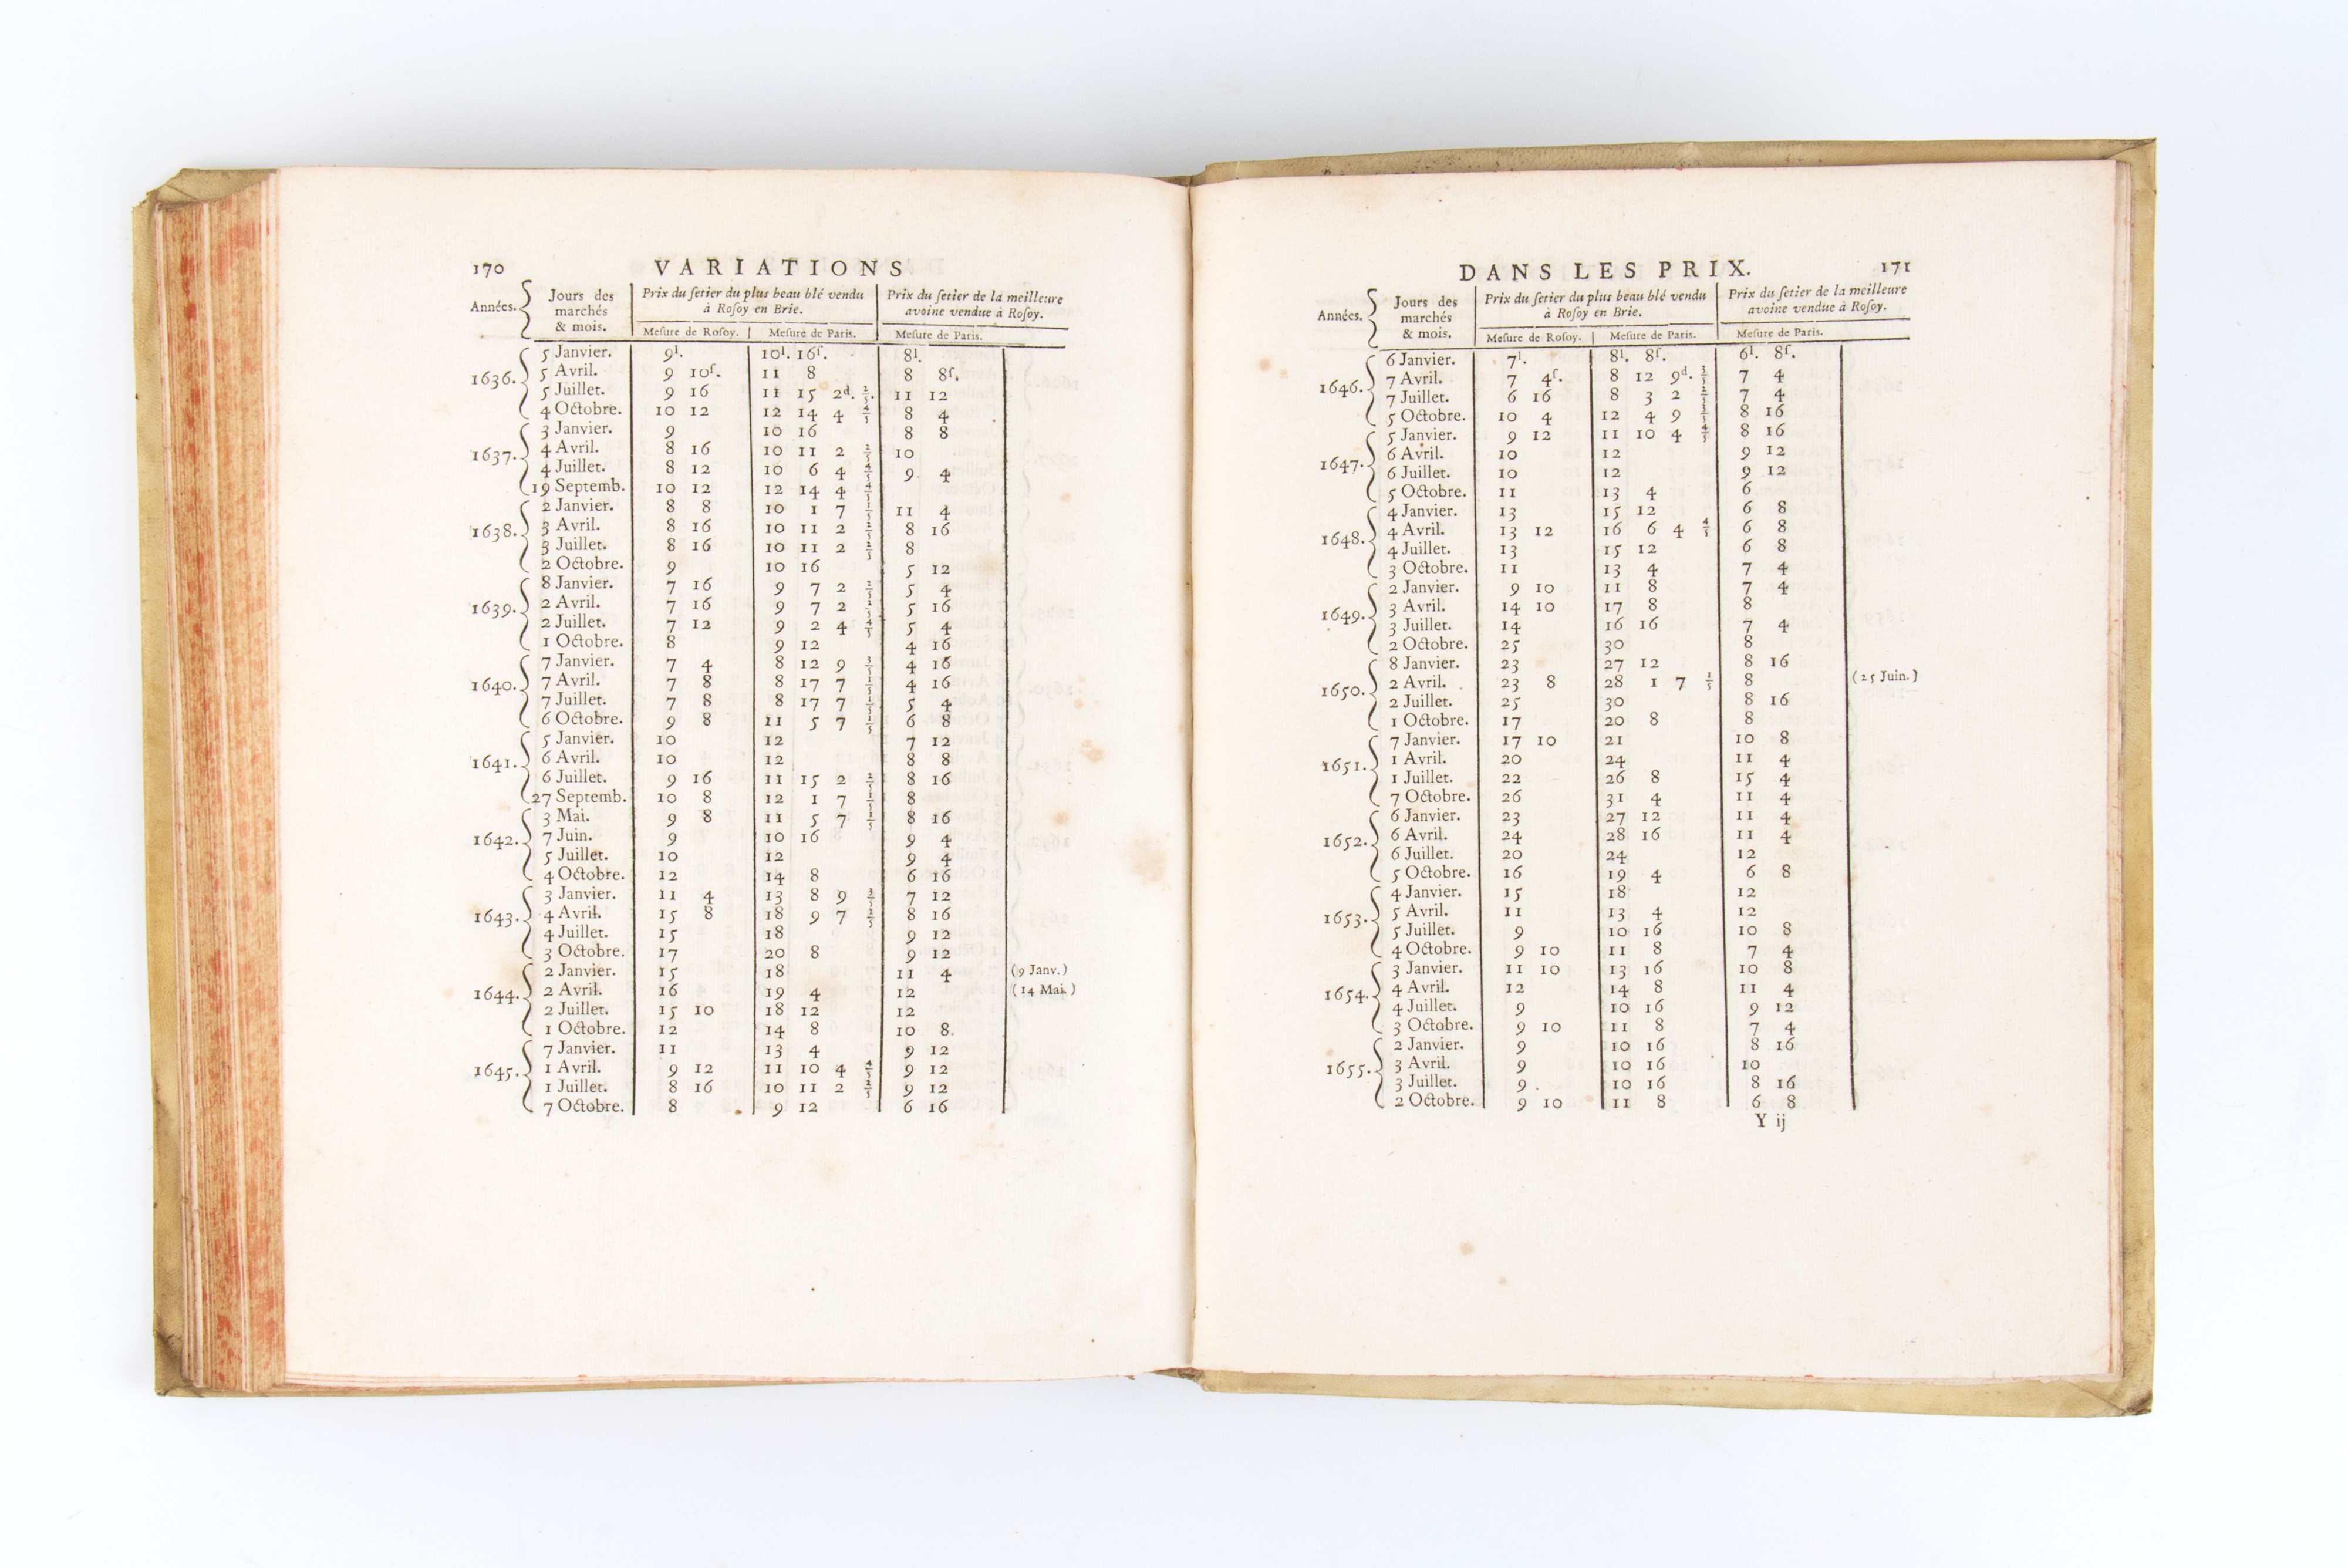 170 VARIATIONS
Années. Jours des marchés & mois. Prix du ſetier du plus beau blé vendu à Roſoy en Brie. Prix du ſetier de la meilleure avoine vendue à Roſoy.
Meſure de Roſoy. Meſure de Paris. Meſure de Paris.
1636. 5 Janvier. 9l. 10l. 16ſ. 8l.
5 Avril. 9 10ſ. 11 8 8 8ſ.
5 Juillet. 9 16 11 15 2d. 2/5. 11 12
4 Octobre. 10 12 12 14 4 4/5 8 4
1637. 3 Janvier. 9 10 16 8 8
4 Avril. 8 16 10 11 2 2/5 10
4 Juillet. 8 12 10 6 4 4/5 9 4
19 Septemb. 10 12 12 14 4 4/5
1638. 2 Janvier. 8 8 10 1 7 1/5 11 4
3 Avril. 8 16 10 11 2 2/5 8 16
3 Juillet. 8 16 10 11 2 2/5 8
2 Octobre. 9 10 16 5 12
1639. 8 Janvier. 7 16 9 7 2 2/5 5 4
2 Avril. 7 16 9 7 2 2/5 5 16
2 Juillet. 7 12 9 2 4 4/5 5 4
1 Octobre. 8 9 12 4 16
1640. 7 Janvier. 7 4 8 12 9 3/5 4 16
7 Avril. 7 8 8 17 7 1/5 4 16
7 Juillet. 7 8 8 17 7 1/5 5 4
6 Octobre. 9 8 11 5 7 1/5 6 8
1641. 5 Janvier. 10 12 7 12
6 Avril. 10 12 8 8
6 Juillet. 9 16 11 15 2 2/5 8 16
27 Septemb. 10 8 12 1 7 1/5 8
1642. 3 Mai. 9 8 11 5 7 1/5 8 16
7 Juin. 9 10 16 9 4
5 Juillet. 10 12 9 4
4 Octobre. 12 14 8 6 16
1643. 3 Janvier. 11 4 13 8 9 3/5 7 12
4 Avril. 15 8 18 9 7 8 16
4 Juillet. 15 18 9 12
3 Octobre. 17 20 8 9 12
1644. 2 Janvier. 15 18 11 4 (9 Janv.)
2 Avril. 16 19 4 12 (14 Mai.)
2 Juillet. 15 10 18 12 12
1 Octobre. 12 14 8 10 8.
1645. 7 Janvier. 11 13 4 9 12
1 Avril. 9 12 11 10 4 4/5 9 12
1 Juillet. 8 16 10 11 2 2/5 9 12
7 Octobre. 8 9 12 6 16
DANS LES PRIX. 171
Années. Jours des marchés & mois. Prix du ſetier du plus beau blé vendu à Roſoy en Brie. Prix du ſetier de la meilleure avoine vendue à Roſoy.
Meſure de Roſoy. Meſure de Paris. Meſure de Paris.
1646. 6 Janvier. 7l. 8l. 8ſ. 6l. 8ſ.
7 Avril. 7 4ſ. 8 12 9d. 3/5 7 4
7 Juillet. 6 16 8 3 2 2/5 7 4
5 Octobre. 10 4 12 4 9 3/5 8 16
1647. 5 Janvier. 9 12 11 10 4 4/5 8 16
6 Avril. 10 12 9 12
6 Juillet. 10 12 9 12
5 Octobre. 11 13 4 6
1648. 4 Janvier. 13 15 12 6 8
4 Avril. 13 12 16 6 4 4/5 6 8
4 Juillet. 13 15 12 6 8
3 Octobre. 11 13 4 7 4
1649. 2 Janvier. 9 10 11 8 7 4
3 Avril. 14 10 17 8 8
3 Juillet. 14 16 16 7 4
2 Octobre. 25 30 8
1650. 8 Janvier. 23 27 12 8 16
2 Avril. 23 8 28 1 7 1/5 8 (25 Juin.)
2 Juillet. 25 30 8 16
1 Octobre. 17 20 8 8
1651. 7 Janvier. 17 10 21 10 8
1 Avril. 20 24 11 4
1 Juillet. 22 26 8 15 4
7 Octobre. 26 31 4 11 4
1652. 6 Janvier. 23 27 12 11 4
6 Avril. 24 28 16 11 4
6 Juillet. 20 24 12
5 Octobre. 16 19 4 6 8
1653. 4 Janvier. 15 18 12
5 Avril. 11 13 4 12
5 Juillet. 9 10 16 10 8
4 Octobre. 9 10 11 8 7 4
1654. 3 Janvier. 11 10 13 16 10 8
4 Avril. 12 14 8 11 4
4 Juillet. 9 10 16 9 12
3 Octobre. 9 10 11 8 7 4
1655. 2 Janvier. 9 10 16 8 16
3 Avril. 9 10 16 10
3 Juillet. 9 10 16 8 16
2 Octobre. 9 10 11 8 6 8
Y ij